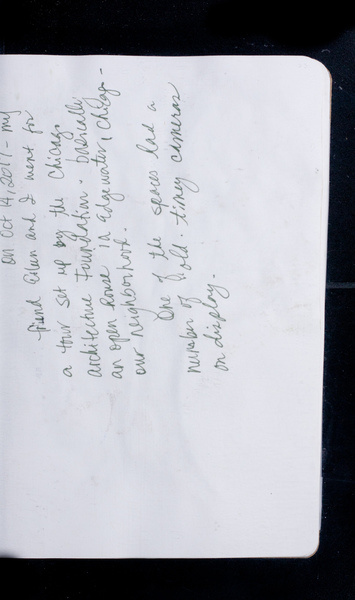 on Oct 14, 2017 - my
friend Eileen and I went for
a tour set up by the Chicago
architecture Foundation. basically
an open house in Edgewater, Chicago -
our neighborhood.
One of the spaces had a
number of old-timey cameras
on display.